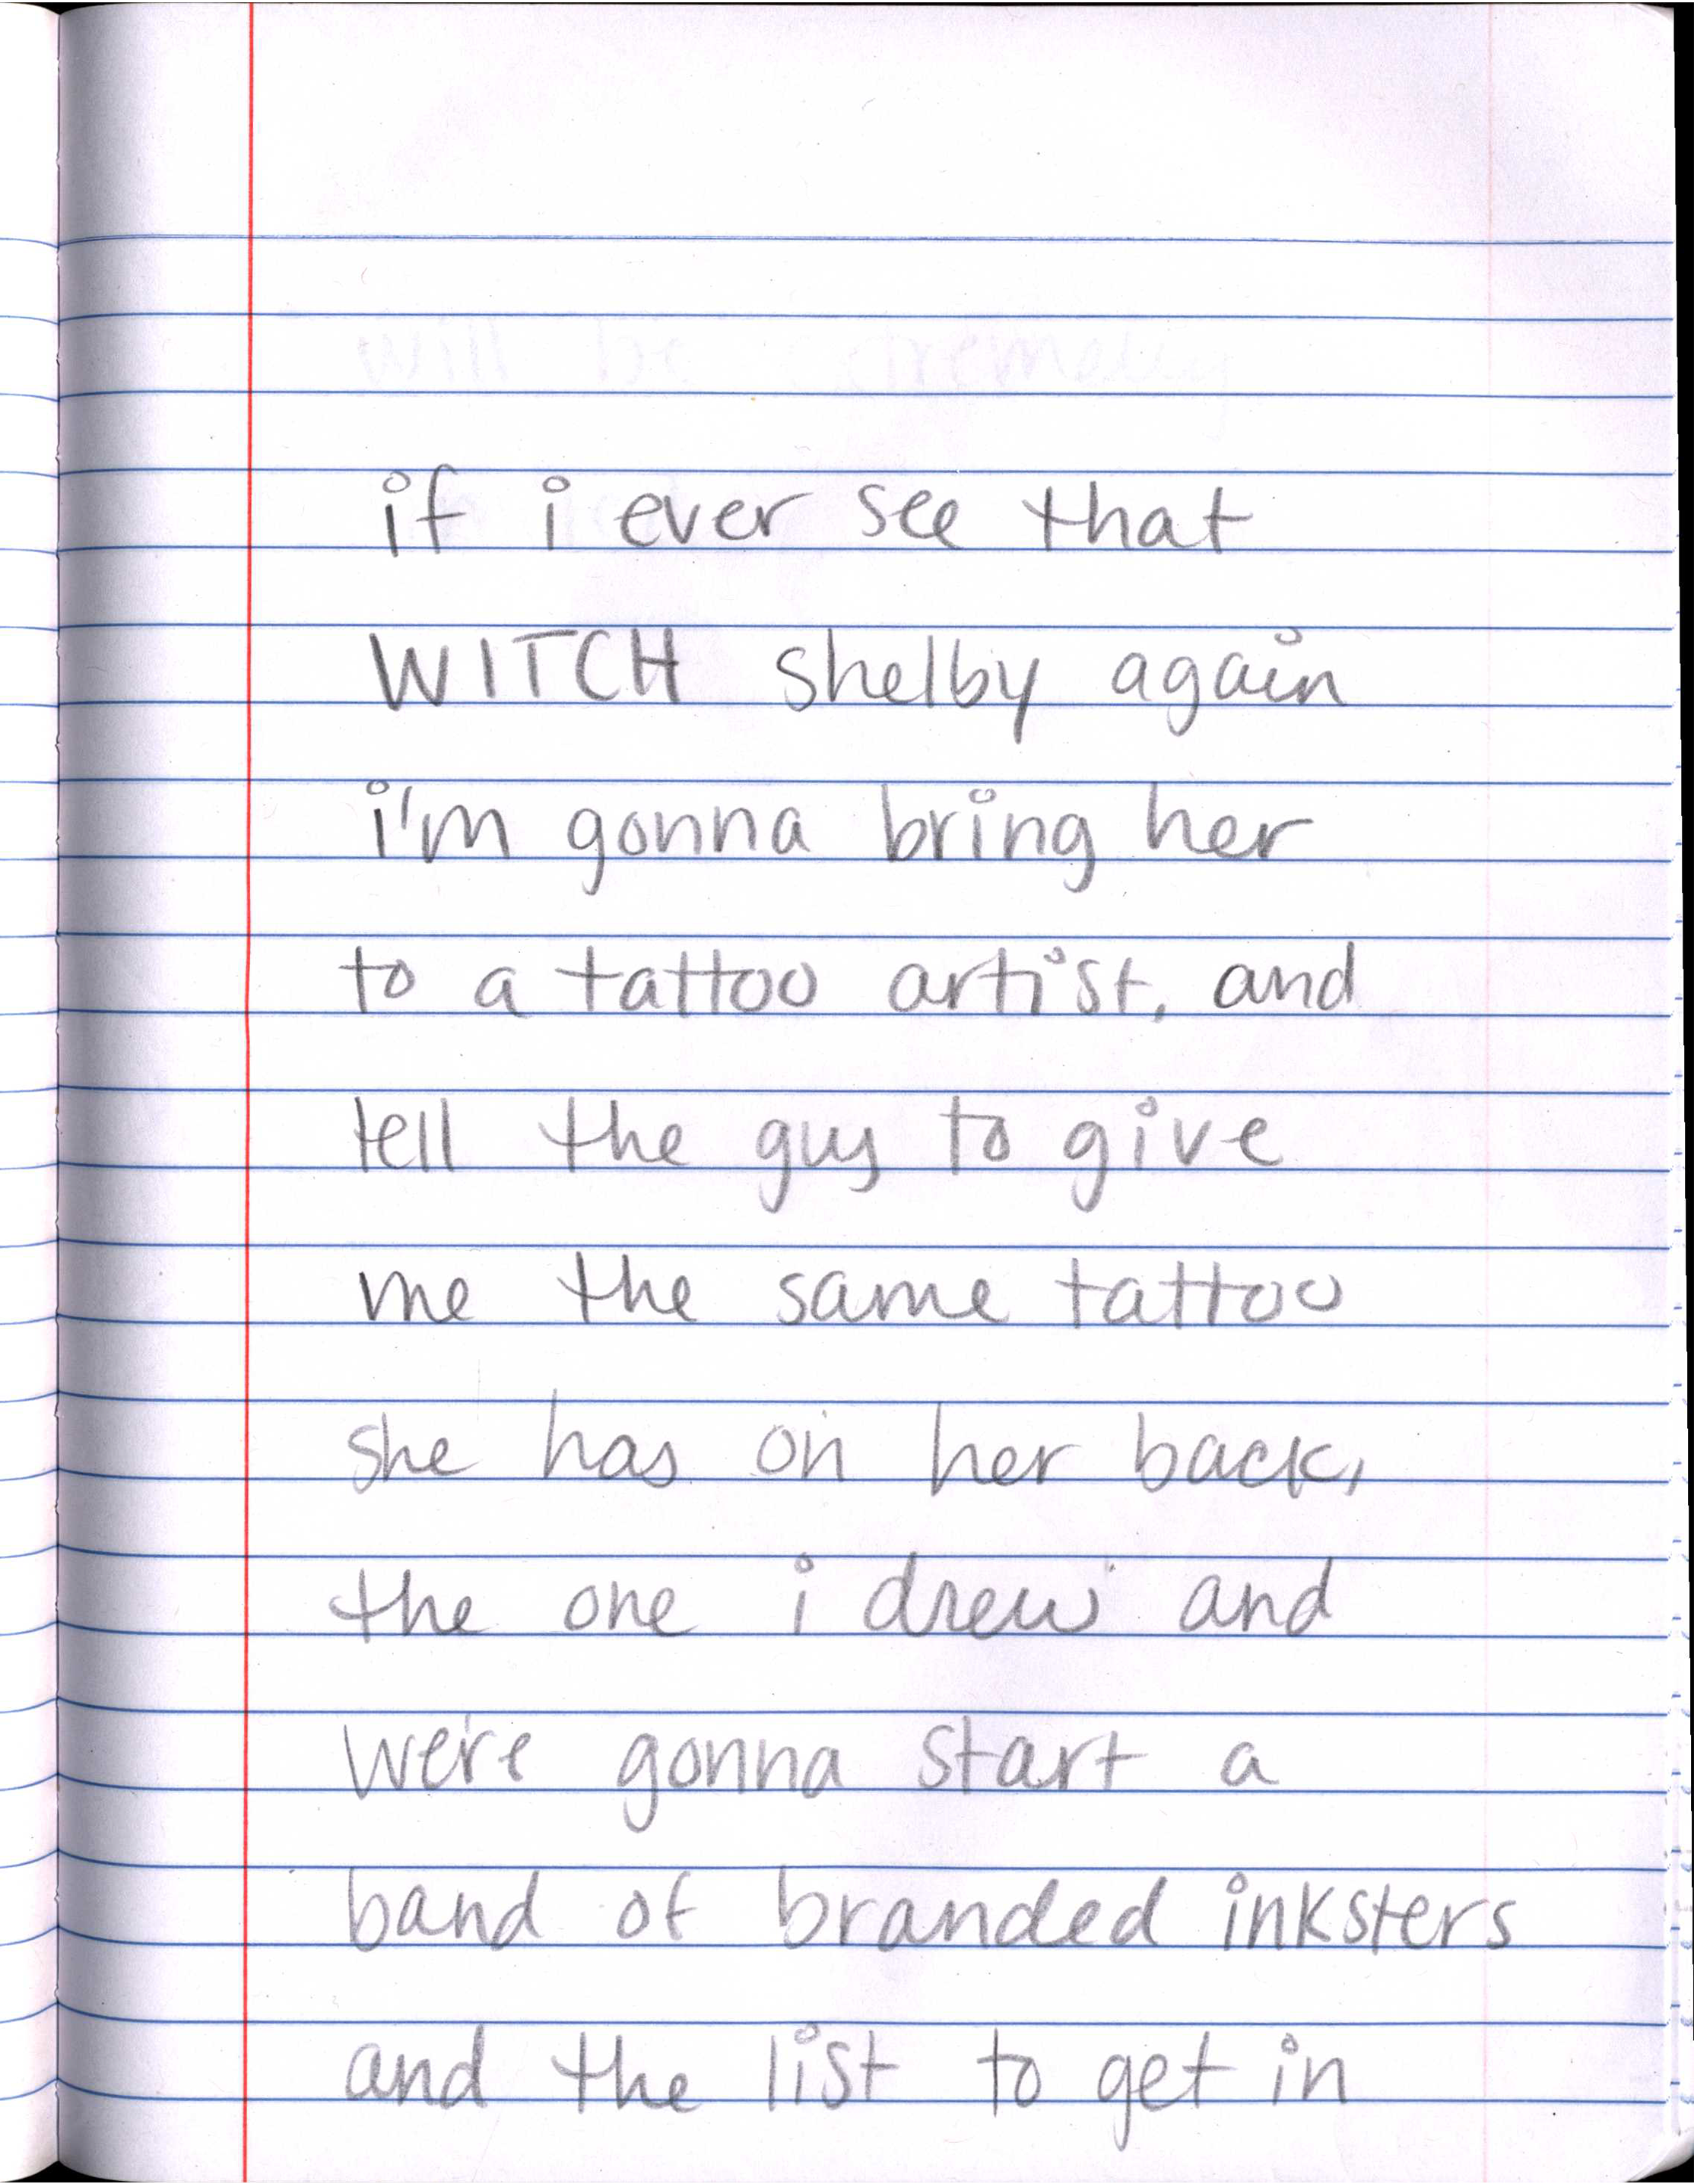 if i ever see that
WITCH shelby again
i'm gonna bring her
to a tattoo artist, and
tell the guy to give
me the same tattoo
she has on her back,
the one i drew and
we're gonna start a
band of branded inksters
and the list to get in